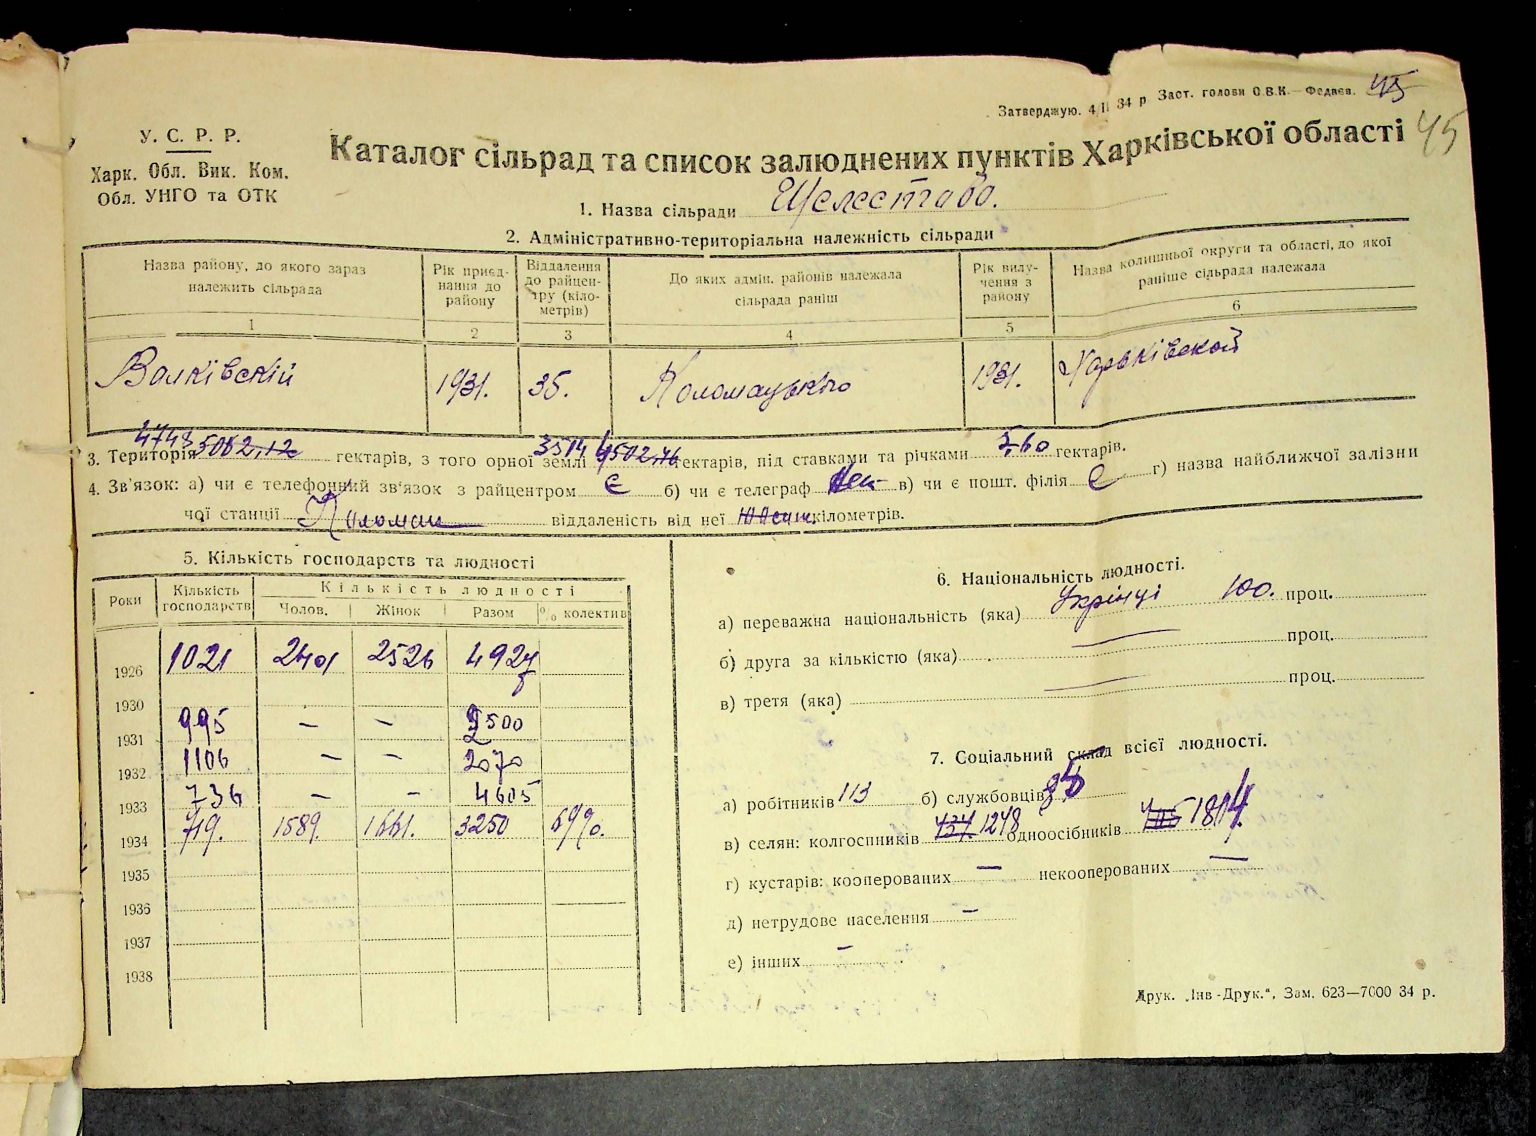 Затверджую. 4 II 34 р Заст. голови О.В.К.—Федяєв. 45
45
У. С. Р. Р.
Харк. Обл. Вик. Ком.
Обл. УНГО та ОТК
Каталог сільрад та список залюднених пунктів Харківської області
1. Назва сільради
2. Адміністративно-територіальна належність сільради
Назва району, до якого зараз належить сільрада
Рік приєднання до району
Віддалення до райцентру (кілометрів)
До яких адмін. районів належала сільрада раніш
Рік вилучення з району
Назва колишньої округи та області, до якої раніше сільрада належала
1 2 3 4 5 6
Валківскій 1931. 35. Коломацького 1931. Харьківской
4743 3514
3. Територія 5062,12 гектарів, з того орної землі 4502,76 гектарів, під ставками та річками 560 гектарів.
4. Зв'язок: а) чи є телефонний зв'язок з райцентром Є б) чи є телеграф в) чи є пошт. філія Є г) назва найближчої залізни
чої станції Коломак віддаленість від неї кілометрів.
5. Кількість господарств та людності
Роки Кількість господарств Кількість людності
Чолов. Жінок Разом % колектив
1926 1021 2401 2526 4927
1930
1931 995 — — 500
1932 1106 — — 2070
1933 736 — — 4605
1934 719. 1589. 1661. 3250 69%.
1935
1936
1937
1938
6. Національність людності.
а) переважна національність (яка) Укрінці 100. проц.
б) друга за кількістю (яка) — проц.
в) третя (яка) — проц.
7. Соціальний склад всієї людності.
а) робітників 113 б) службовців
в) селян: колгоспників 434 1248 одноосібників 1814
г) кустарів: кооперованих — некооперованих —
д) нетрудове населення —
е) інших —
Друк. „Інв-Друк.“, Зам. 623—7000 34 р.